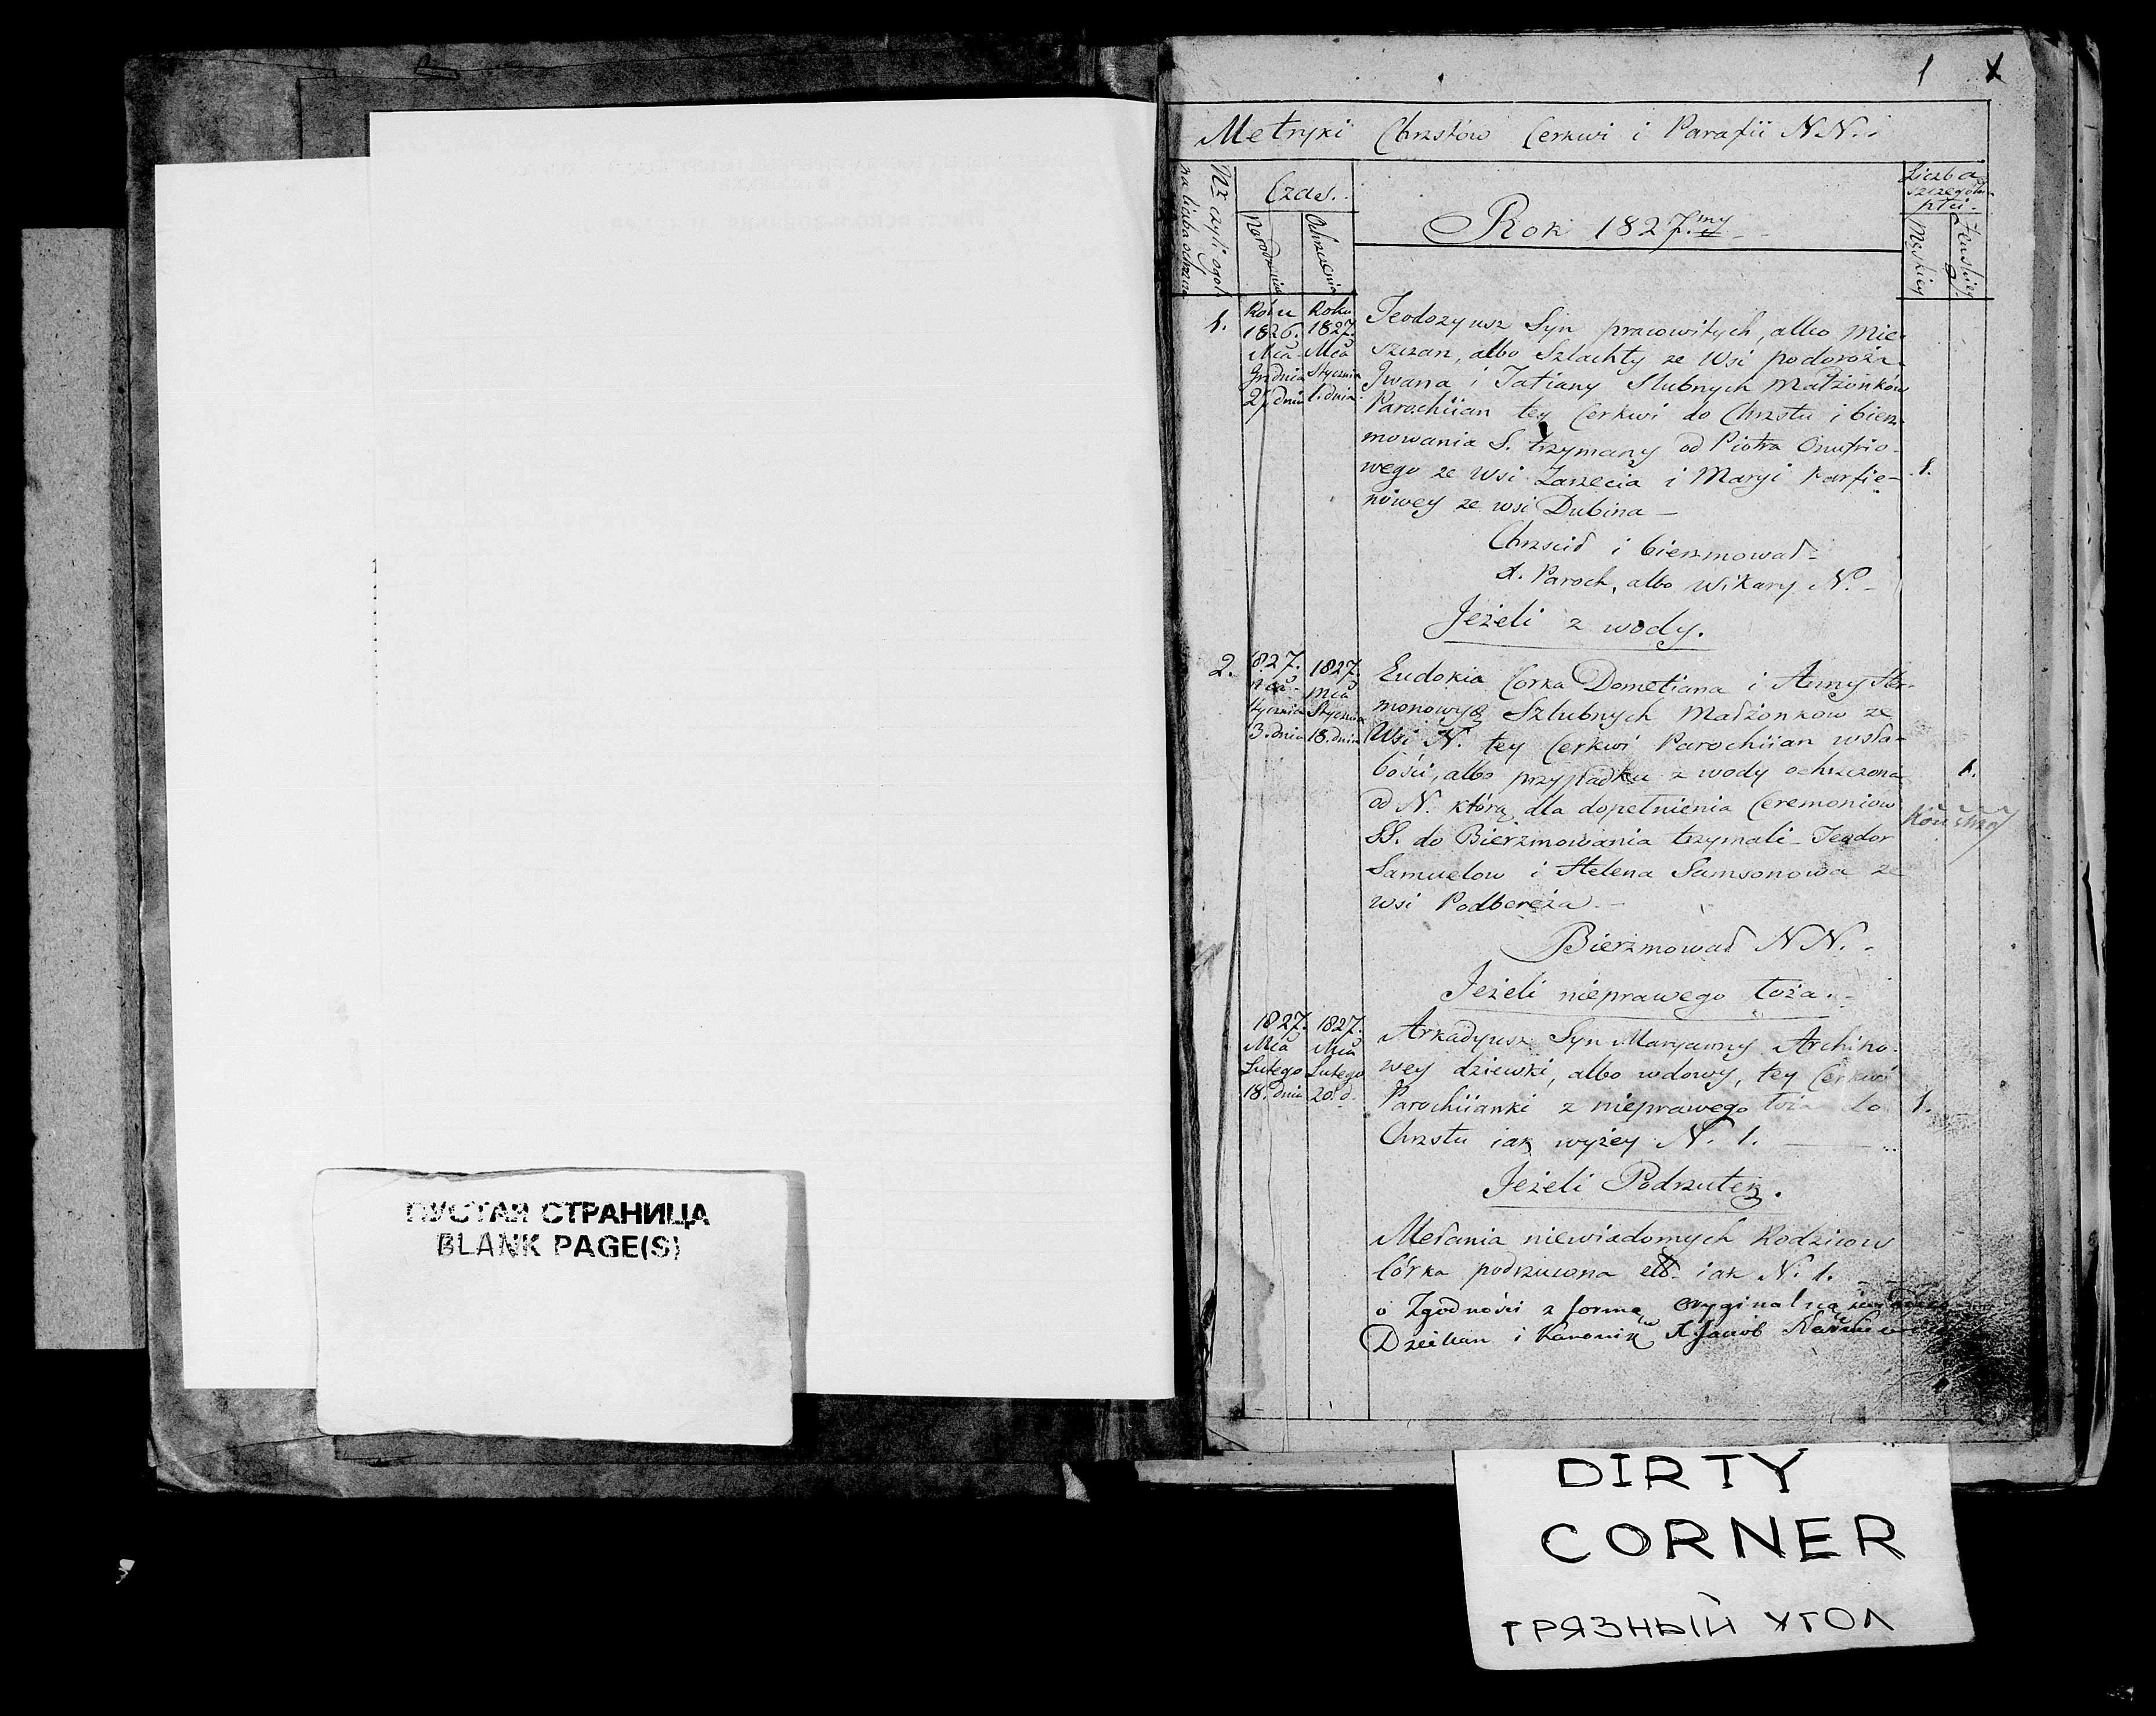 ПУСТАЯ СТРАНИЦА
BLANK PAGE(S)
1
Metryki Chrztów Cerkwi i Parafii N N.
Nr czyli ogol
na liczba
Czas.
Narodzenia
Ochrzczenia
Rok 1827.my
Liczba
szczególn
płci.
Męskiey
Żeńskiey
1.
Roku
1826.
Mca
Grudnia
27 dnia
Roku
1827.
Mca
Stycznia
1. dnia
Teodozyusz Syn pracowitych, albo mie-
szczan, albo Szlachty ze Wsi podoroża
Jwana i Tatiany Slubnych Małżonków
Parochiian tey Cerkwi do Chrztu i bierz-
mowania S. trzymany od Piotra Onufrio-
wego ze Wsi Zarzecia i Maryi Parfie-
nowey ze wsi Dubina —
1.
Chrzcił i bierzmował -
X. Paroch, albo Wikary N. -
Jeżeli z wody.
2.
1827.
Mca
Stycznia
3. dnia
1827.
Mca
Stycznia
18. dnia
Eudokia Corka Dometiana i Anny Har-
monowych Szlubnych Małżonkow ze
Wsi N. tey Cerkwi Parochiian w sła-
bości, albo przypadku z wody ochrzczona
od N. którą dla dopełnienia Ceremoniow
SS. do Bierzmowania trzymali Teodor
Samuelow i Helena Samsonowa ze
wsi Podbereża. -
1.
Bierzmował N N. -
Jeżeli nieprawego łoża. -
1827.
Mca
Lutego
18. dnia
1827.
Mca
Lutego
20. d.
Arkadyusz Syn Maryanny Archipo-
wey dziewki, albo wdowy, tey Cerkwi
Parochiianki z nieprawego łoża do
Chrztu iak wyżey N. 1.
1.
Jeżeli Podrzutek.
Melania niewiadomych Rodzicow
Córka podrzucona etc. iak N. 1.
o Zgodności z formą oryginalną
Dziekan i Kanonik X Jakób
DIRTY
CORNER
ГРЯЗНЫЙ УГОЛ